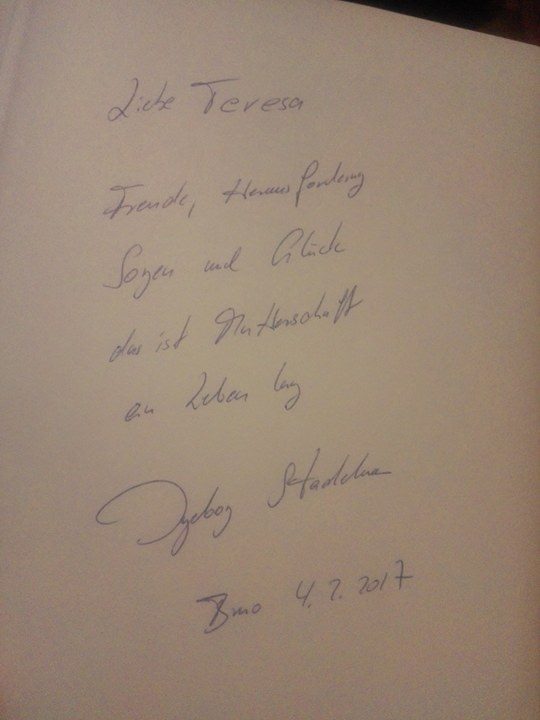 Liebe Teresa
Freude, Herausforderung
Sorgen und Glück
das ist Mutterschaft
ein Leben lang
Ingeborg Stadelma
Brno 4. 2. 2017